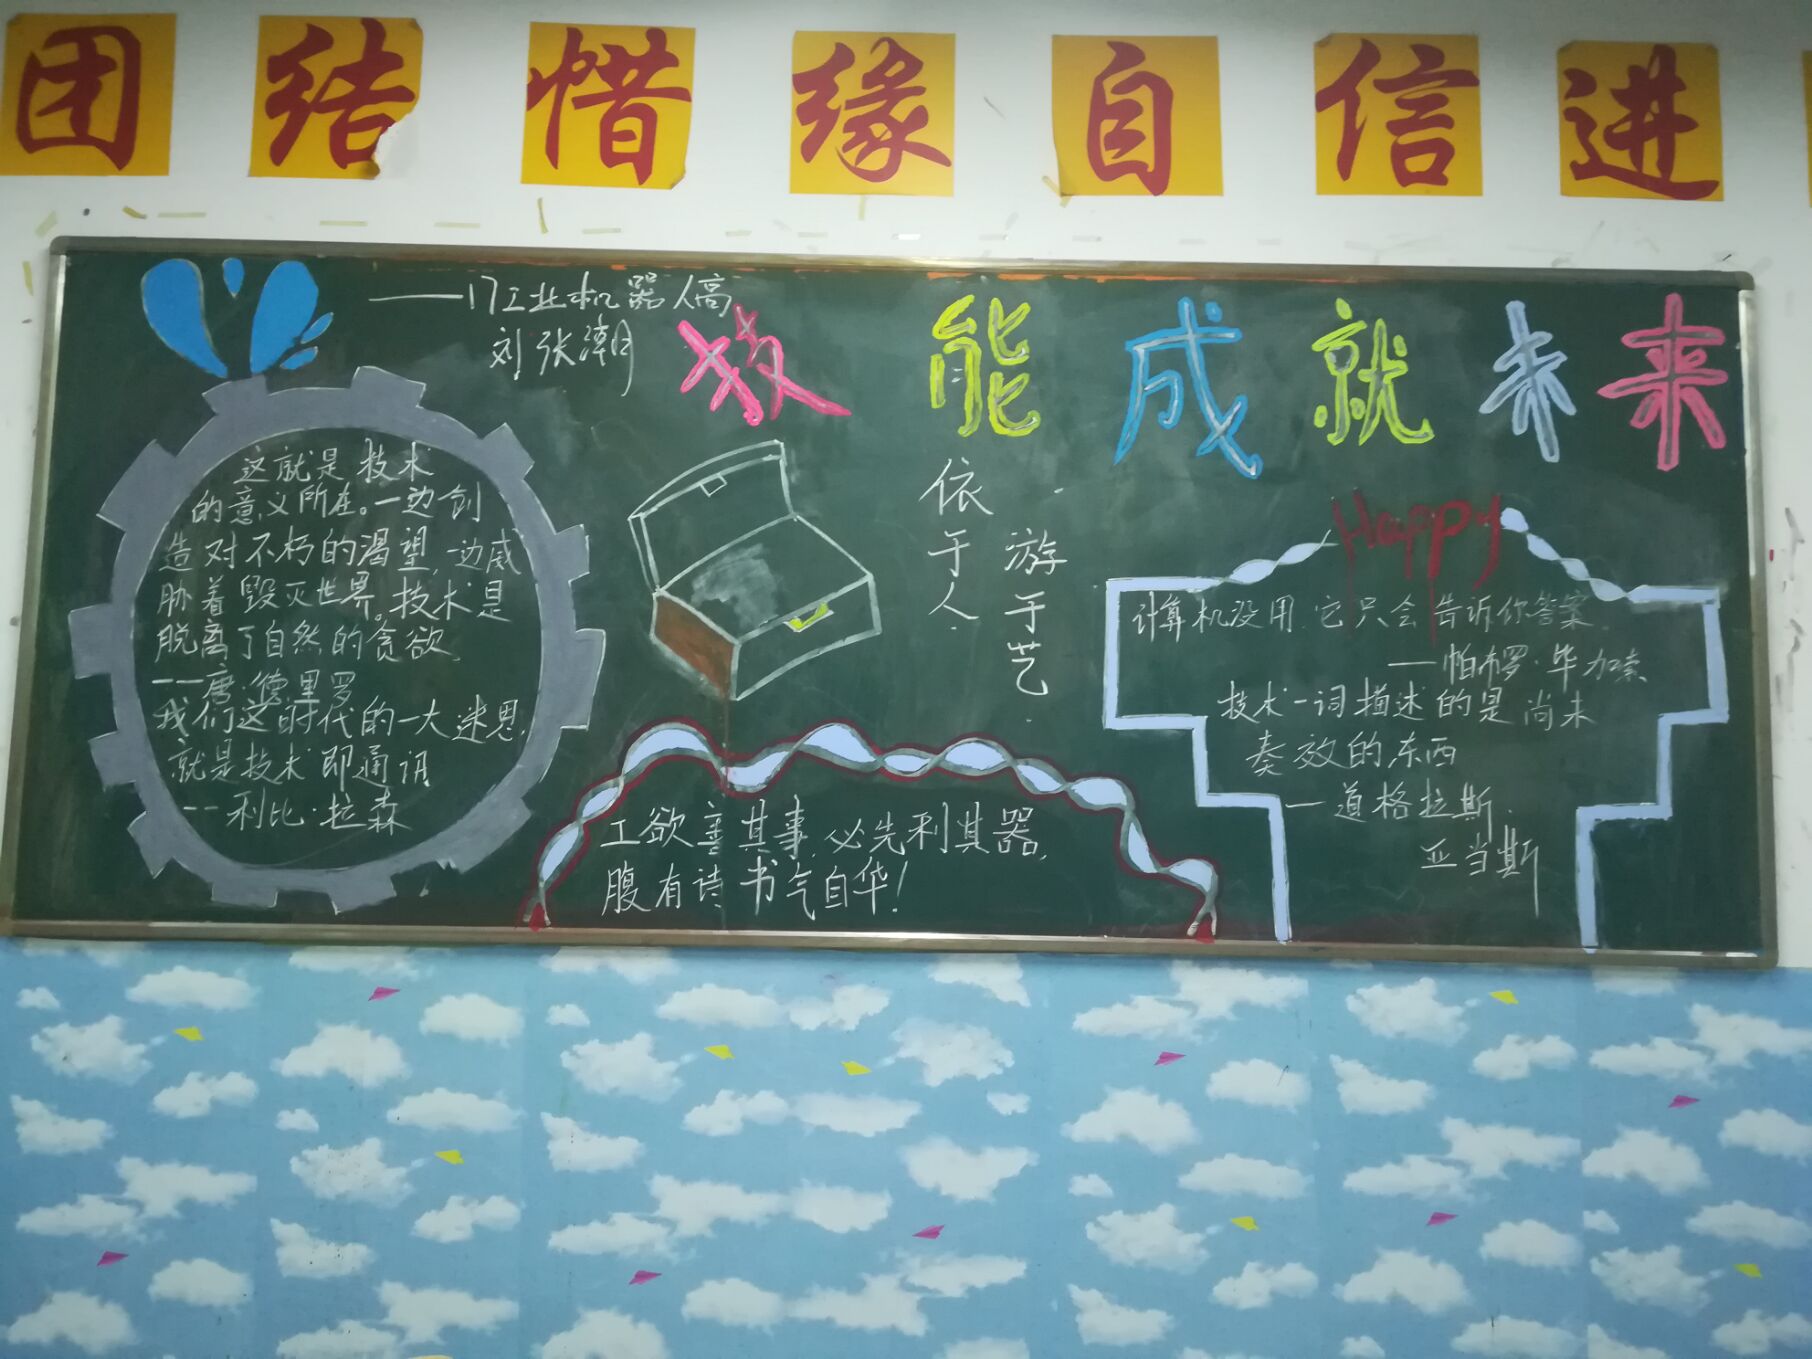 团结惜缘自信进
——17工业机器人高
刘张潮
技能成就未来
这就是技术
的意义所在。一边创
造对不朽的渴望,一边威
胁着毁灭世界。技术是
脱离了自然的贪欲.
——唐·德里罗
我们这时代的一大迷思,
就是技术即通讯
——利比·拉森
依于人.
游于艺.
工欲善其事,必先利其器,
腹有诗书气自华!
Happy
计算机没用.它只会告诉你答案.
——帕布罗·毕加索
技术一词描述的是尚未
奏效的东西
—道格拉斯.
亚当斯